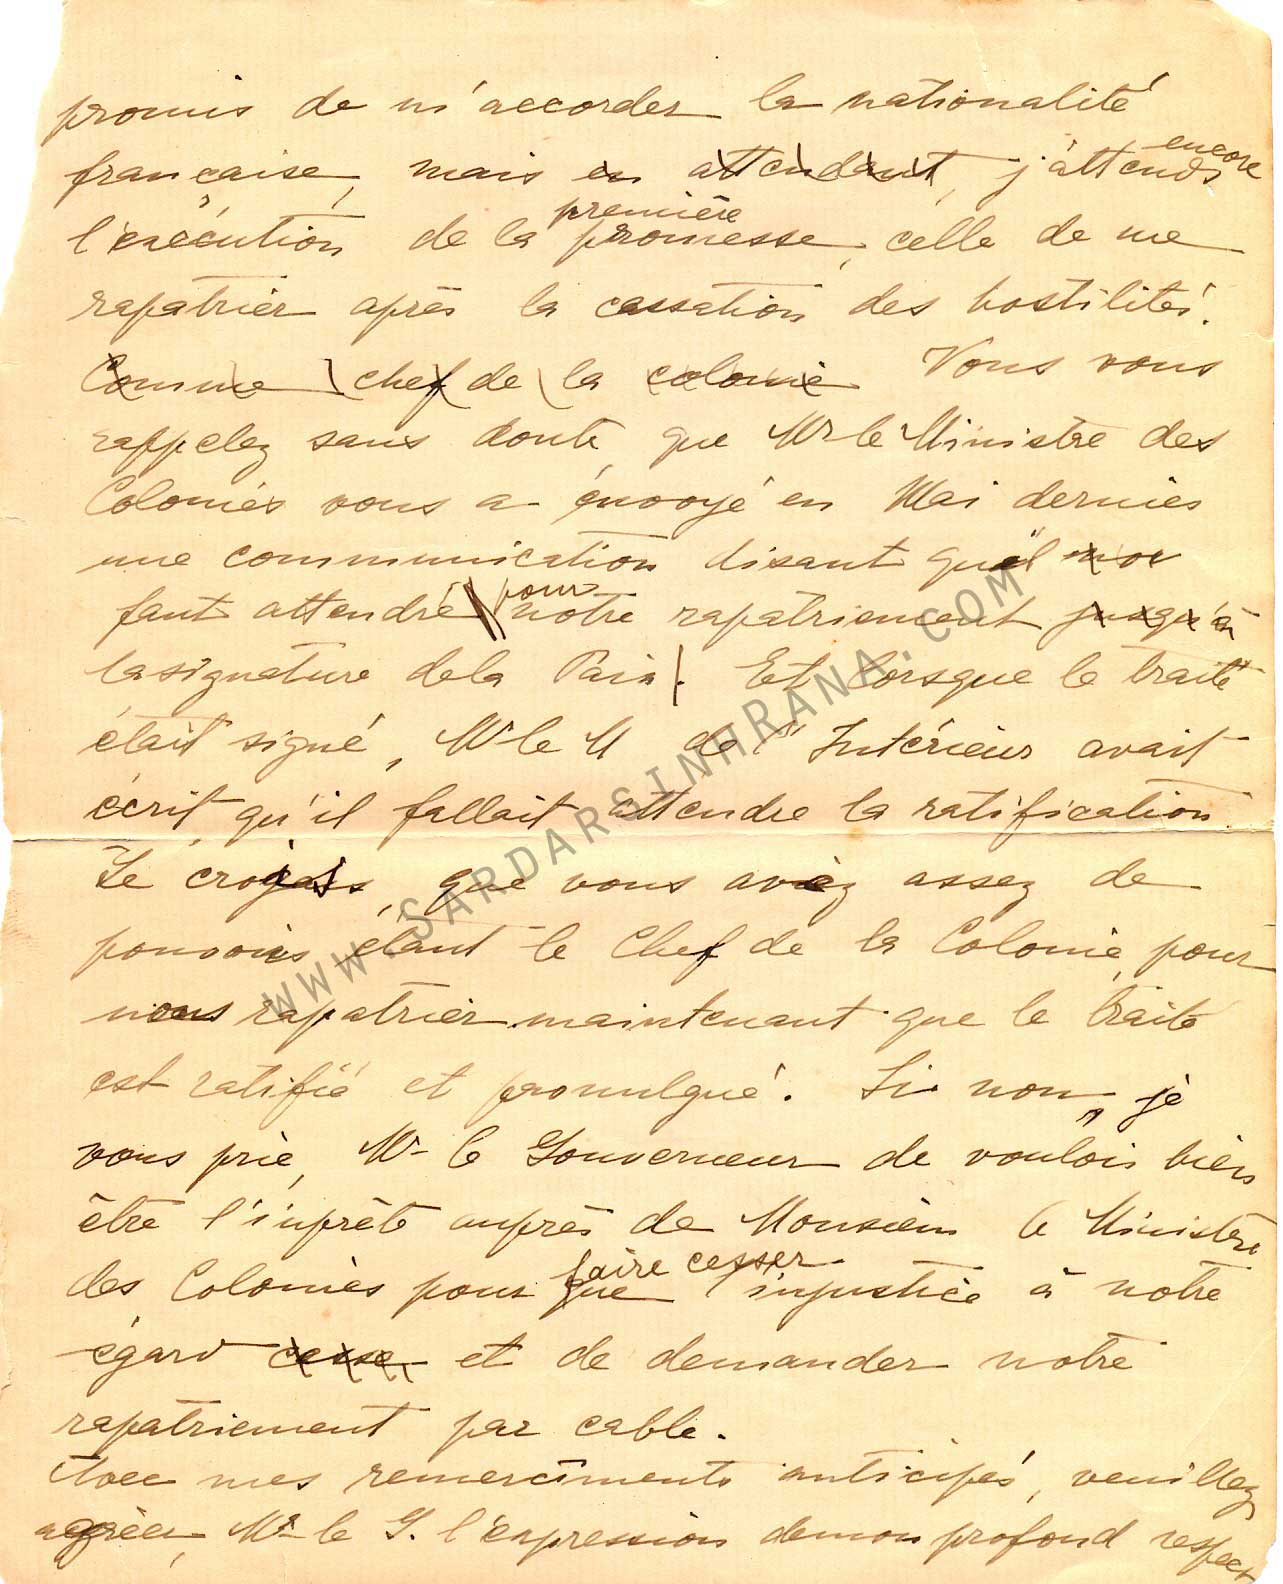 promis de m'accorder la nationalité
française, mais en attendant, j'attends encore
l'exécution de la première promesse, celle de me
rapatrier après la cassation des hostilités.
Comme chef de la colonie Vous vous
rappelez sans doute, que Mr le Ministre des
Colonies vous a envoyé en Mai dernier
une communication disant qu'il nous
faut attendre pour notre rapatriement jusqu'à
la signature de la Paix. Et lorsque le traité
était signé, Mr le M de l'Intérieur avait
écrit, qu'il fallait attendre la ratification.
Je croyais, que vous aviez assez de
pouvoirs étant le Chef de la Colonie, pour
nous rapatrier maintenant que le traité
est ratifié et promulgué. Si non, je
vous prie, Mr le Gouverneur de vouloir bien
être l'inprète auprès de Monsieur le Ministre
des Colonies pour que faire cesser l'injustice à notre
égard cesse et de demander notre
rapatriement par cable.
Avec mes remercîments anticipés, veuillez
agréer, Mr le G. l'expression de mon profond respect
WWW.SARDARSINHRANA.COM